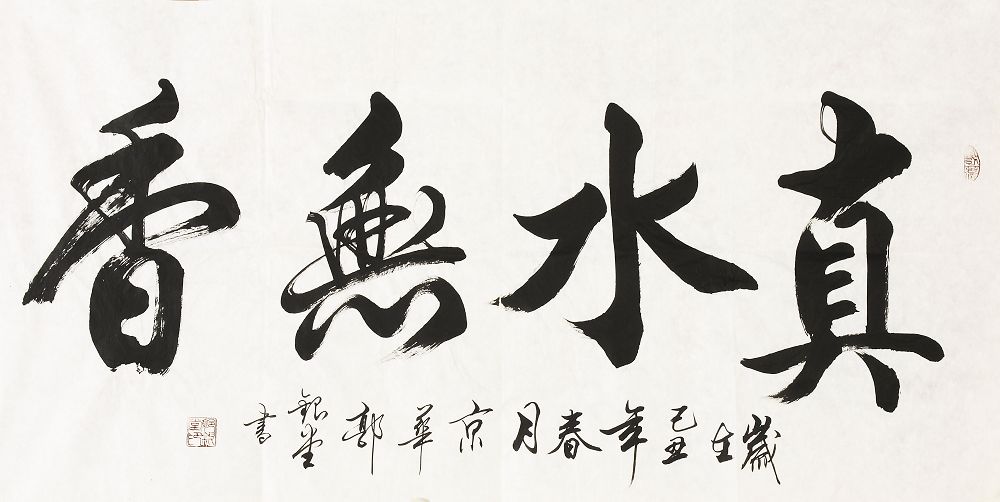 真水無香
歲在己丑年春月京華郭銀堂書